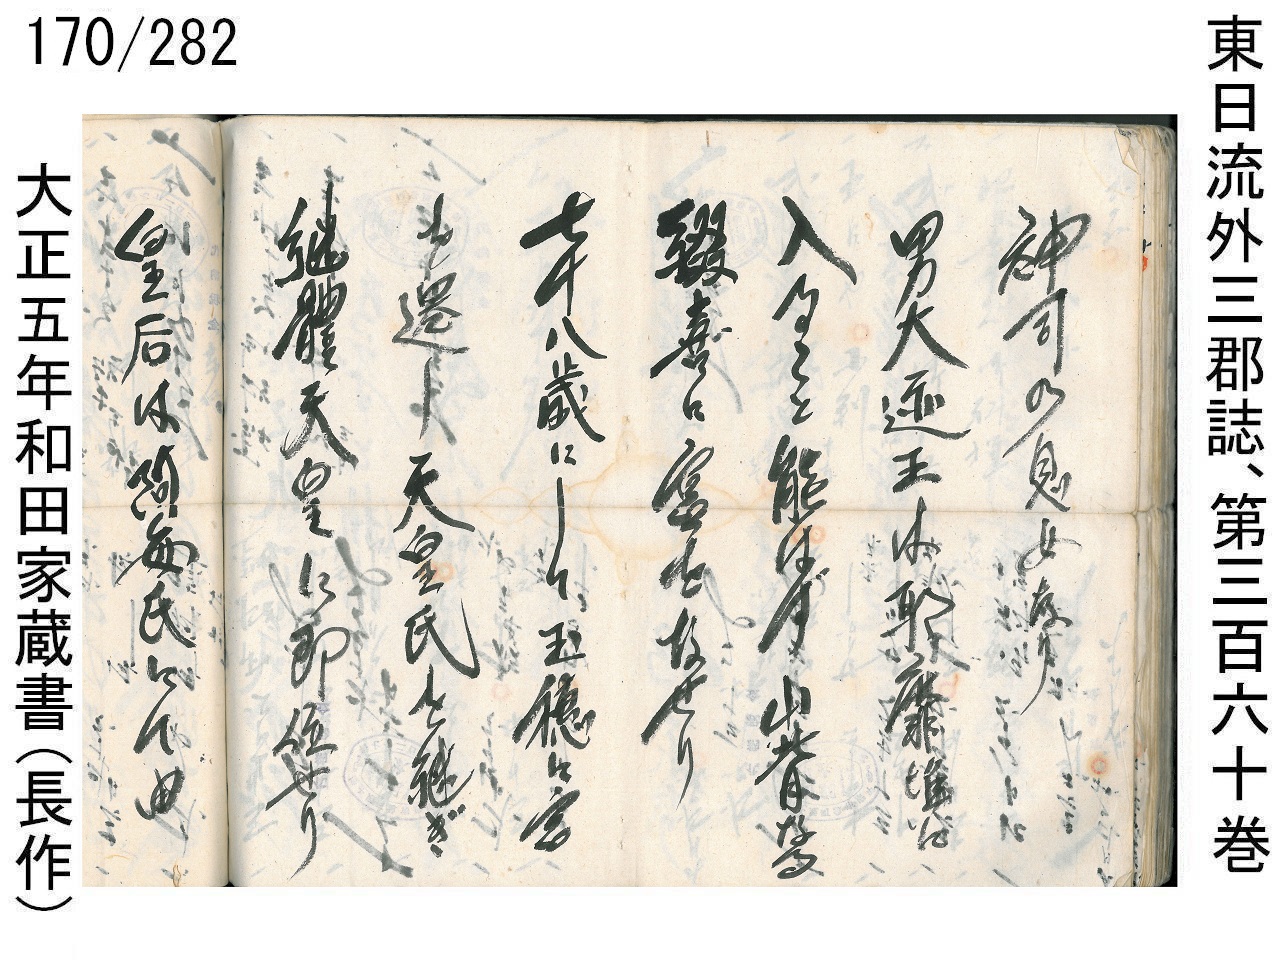 170/282
東日流外三郡誌、第三百六十巻
神司の息女なり
男大迹王は耶靡堆に
入ること能はず山背
綴喜に宮をなせり
七十八歳にして玉穂に宮
を遷し天皇氏を継ぎ
継體天皇に即位せり
皇后は阿毎氏にて
大正五年和田家蔵書（長作）